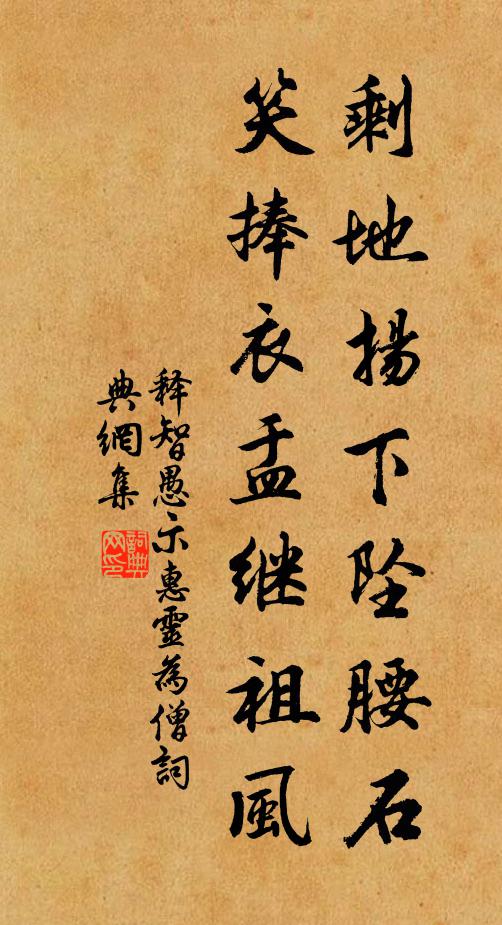 剩地揚下坠腰石
笑捧衣盂继祖風
释智愚示惠靈為僧詞
典網集
詞典网印